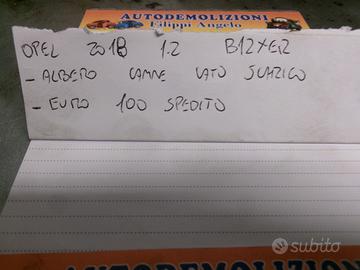 AUTODEMOLIZIONI
Filippi Angelo
OPEL 2018 1.2 B12XER
- ALBERO CAMME LATO SCARICO
- EURO 100 SPEDITO
subito
AUTODEMOLIZIONI